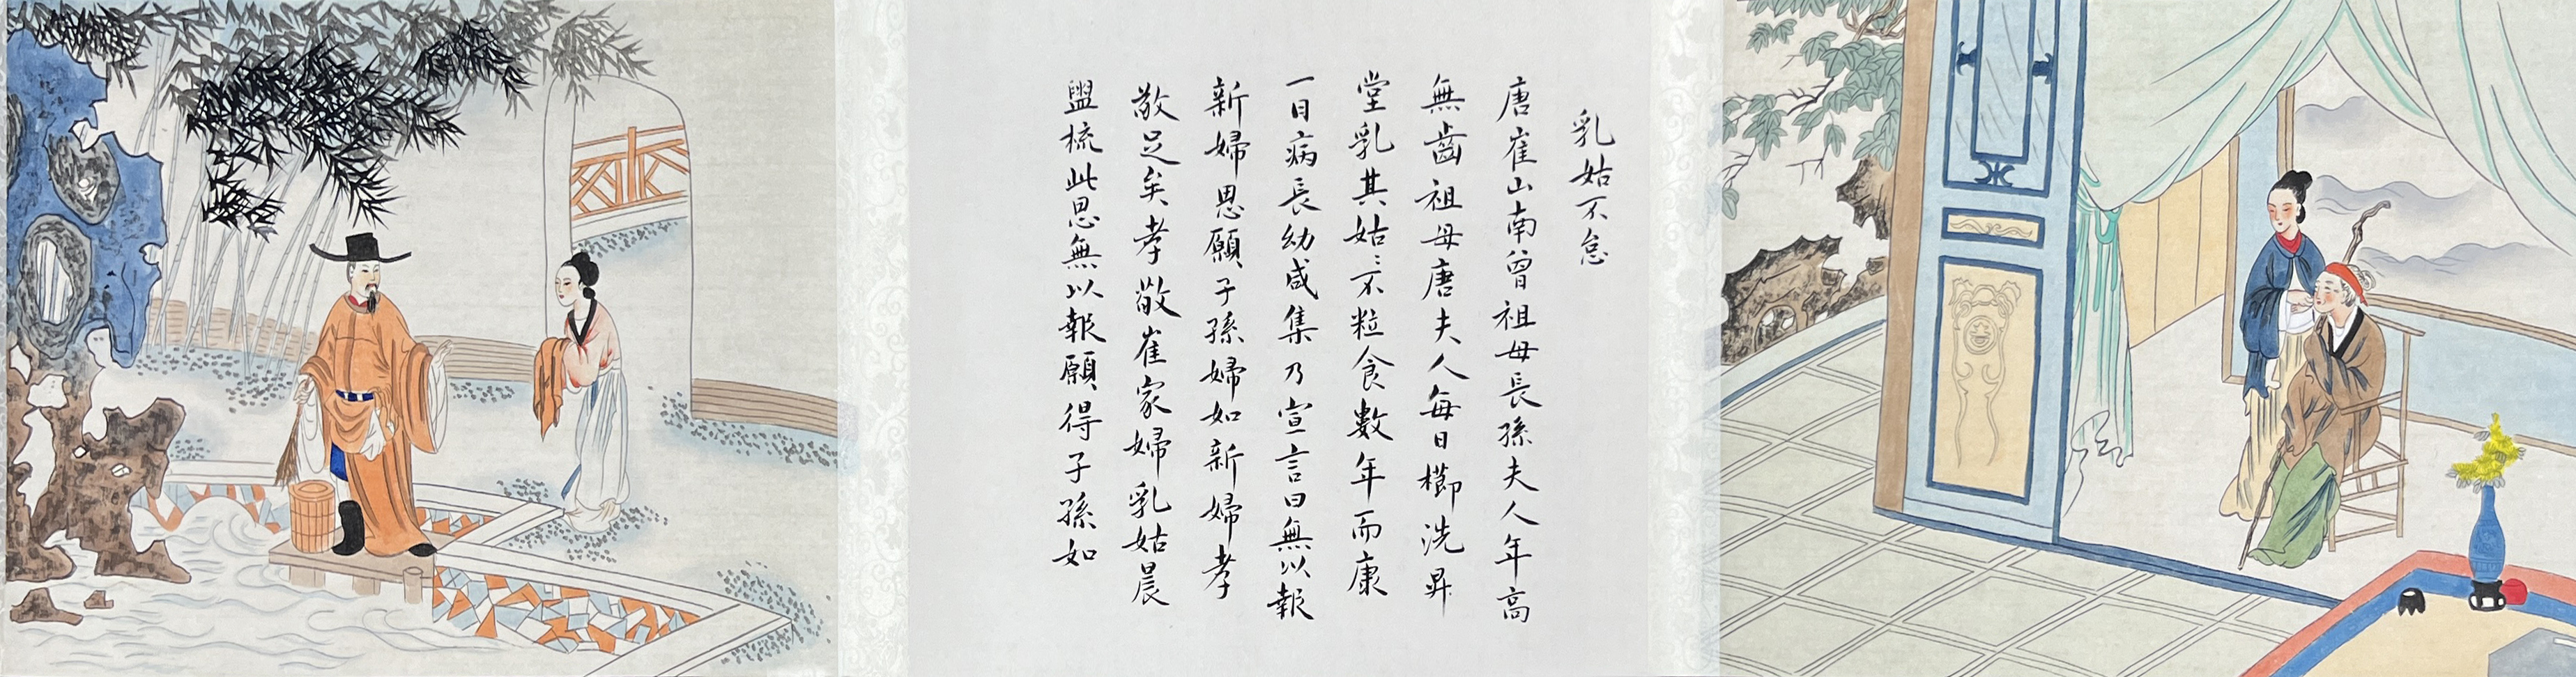 乳姑不怠
唐崔山南曾祖母長孫夫人年高
無齒祖母唐夫人每日櫛洗昇
堂乳其姑〻不粒食數年而康
一日病長幼咸集乃宣言曰無以報
新婦恩願子孫婦如新婦孝
敬足矣孝敬崔家婦乳姑晨
盥梳此恩無以報願得子孫如